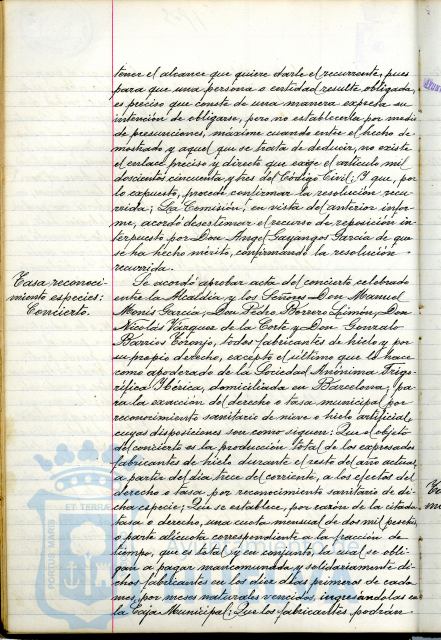 tener el alcance que quiere darle el recurrente, pues
para que una persona o entidad resulte obligada,
es preciso que conste de una manera expresa su
intención de obligarse, pero no establecerla por medio
de presunciones, máxime cuando entre el hecho de-
mostrado y aquel que se trata de deducir, no existe
el enlace preciso y directo que exige el artículo mil
doscientos cincuenta y tres del Código Civil; Y que, por
lo expuesto, procede confirmar la resolución recu-
rrida; La Comisión, en vista del anterior infor-
me, acordó desestimar el recurso de reposición in-
terpuesto por Don Angel Gayangos García de que
se ha hecho mérito, confirmando la resolución
recurrida.
Tasa reconoci-
miento especies:
Concierto.
Se acordó aprobar acta del concierto celebrado
entre la Alcaldía y los Señores Don Manuel
Monis García, Don Pedro Borrero Limón, Don
Nicolás Vázquez de la Corte y Don Gonzalo
Barrios Toronjo, todos fabricantes de hielo y por
su propio derecho, excepto el último que lo hace
como apoderado de la Sociedad Anónima Frigo-
rífica Ibérica, domiciliada en Barcelona, pa-
ra la exacción del derecho o tasa municipal por
reconocimiento sanitario de nieve o hielo artificial,
cuyas disposiciones son como siguen: Que el objeto
del concierto es la producción total de los expresados
fabricantes de hielo durante el resto del año actual,
a partir del día trece del corriente, a los efectos del
derecho o tasa por reconocimiento sanitario de di-
cha especie; Que se establece, por razón de la citada
tasa o derecho, una cuota mensual de dos mil pesetas,
o parte alícuota correspondiente a la fracción de
tiempo, que es total y en conjunto, la cual se obli-
gan a pagar mancomunada y solidariamente di-
chos fabricantes en los diez días primeros de cada
mes, por meses naturales vencidos, ingresándolas en
la Caja Municipal; Que los fabricantes podrán
PORTUS MARIS
ET TERRA